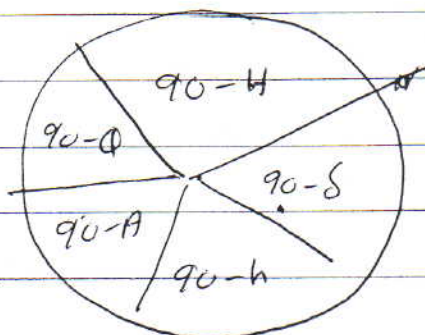 90-H
90-Q
90-δ
90-A
90-h